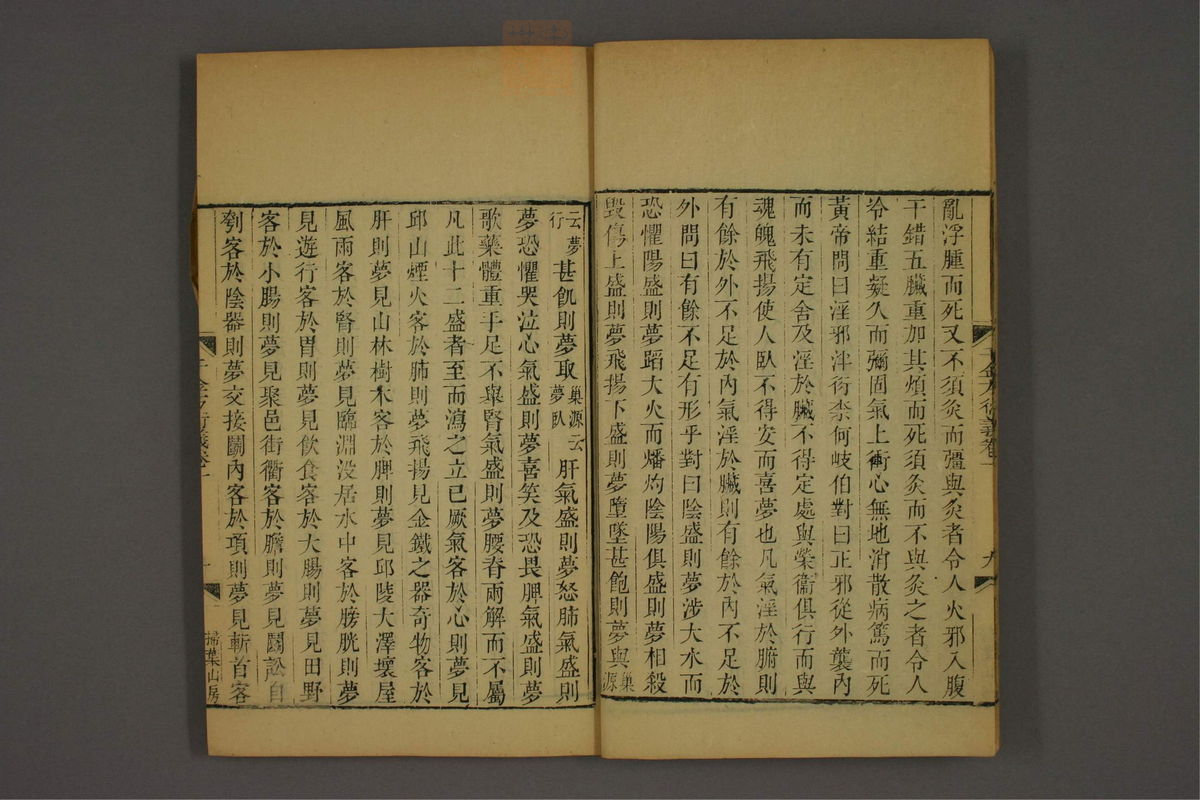 亂浮腫而死又不須灸而彊與灸者令人火邪入腹
干錯五臟重加其煩而死須灸而不與灸之者令人
冷結重凝久而彌固氣上衝心無地消散病篤而死
黃帝問曰淫邪泮衍柰何岐伯對曰正邪從外襲內
而未有定舍及淫於臟不得定處與榮衞俱行而與
魂魄飛揚使人臥不得安而喜夢也凡氣淫於腑則
有餘於外不足於內氣淫於臟則有餘於內不足於
外問曰有餘不足有形乎對曰陰盛則夢涉大水而
恐懼陽盛則夢蹈大火而燔灼陰陽俱盛則夢相殺
毀傷上盛則夢飛揚下盛則夢墮墜甚飽則夢與巢源
千金方衍義卷一
九
云夢行甚飢則夢取巢源云夢臥肝氣盛則夢怒肺氣盛則
夢恐懼哭泣心氣盛則夢喜笑及恐畏脾氣盛則夢
歌藥體重手足不舉腎氣盛則夢腰脊兩解而不屬
凡此十二盛者至而瀉之立已厥氣客於心則夢見
邱山煙火客於肺則夢飛揚見金鐵之器奇物客於
肝則夢見山林樹木客於脾則夢見邱陵大澤壞屋
風雨客於腎則夢見臨淵沒居水中客於膀胱則夢
見遊行客於胃則夢見飲食客於大腸則夢見田野
客於小腸則夢見聚邑街衢客於膽則夢見鬭訟自
刳客於陰器則夢交接鬭內客於項則夢見斬首客
千金方衍義卷一
掃葉山房